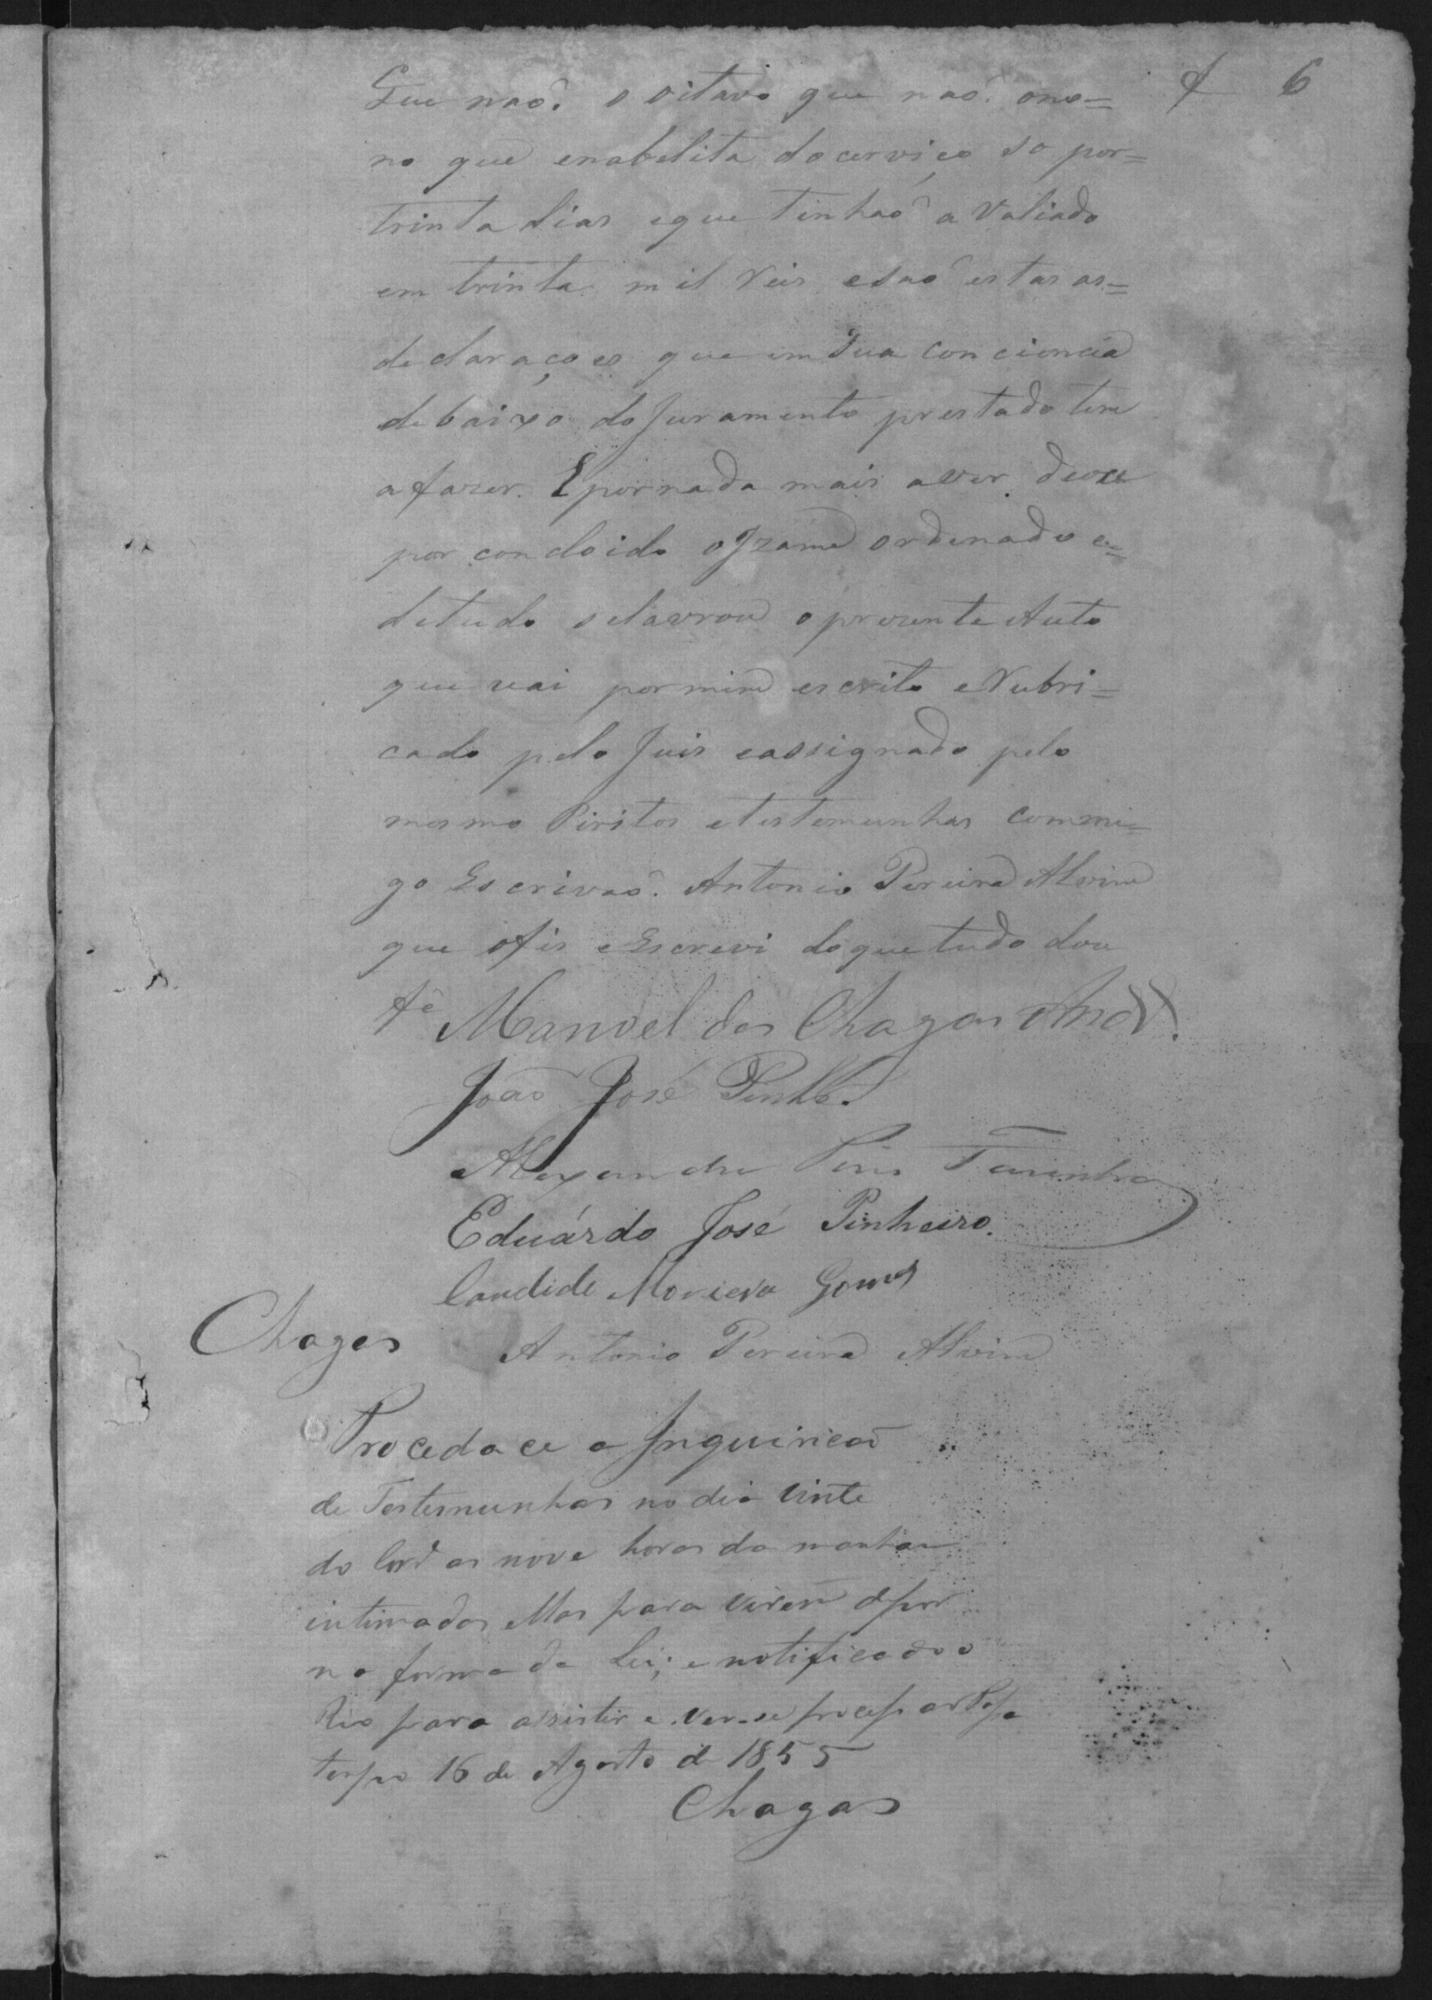 f 6
Que naõ. o oitavo que naõ. ono=
no que enabelita do cerviço so por=
trinta dias eque tinhaõ a valiado
em trinta mil Reis esaõ estas as=
declaraçoes que em Sua conciencia
debaixo do Juramento prestado tem
afazer. E por nada mais aver deoce
por concloido o Izame ordenado e=
detudo selavrou oprezente Auto
que vai por mim escrito e Rubri=
cado pelo Juis eassignado pelo
mesmo Piritos etestemunhas commi=
go Escrivaõ. Antonio Pereira Alvim
que ofis eEscrevi doque tudo dou
fé Manoel das Chagas Andr.
João José Pinh.
Alexandre Pires
Eduárdo José Pinheiro.
Candido Moreira Gomes
Chagas Antonio Pereira Alvim
Procedace a Inquiricaõ
de Testemunhas no dia vinte
do Corr as nove horas da manhan
intimadas ellas para virem depor
na forma da Lei; e notificado o
Reo para assistir e ver-se processar
16 de Agosto de 1855
Chagas